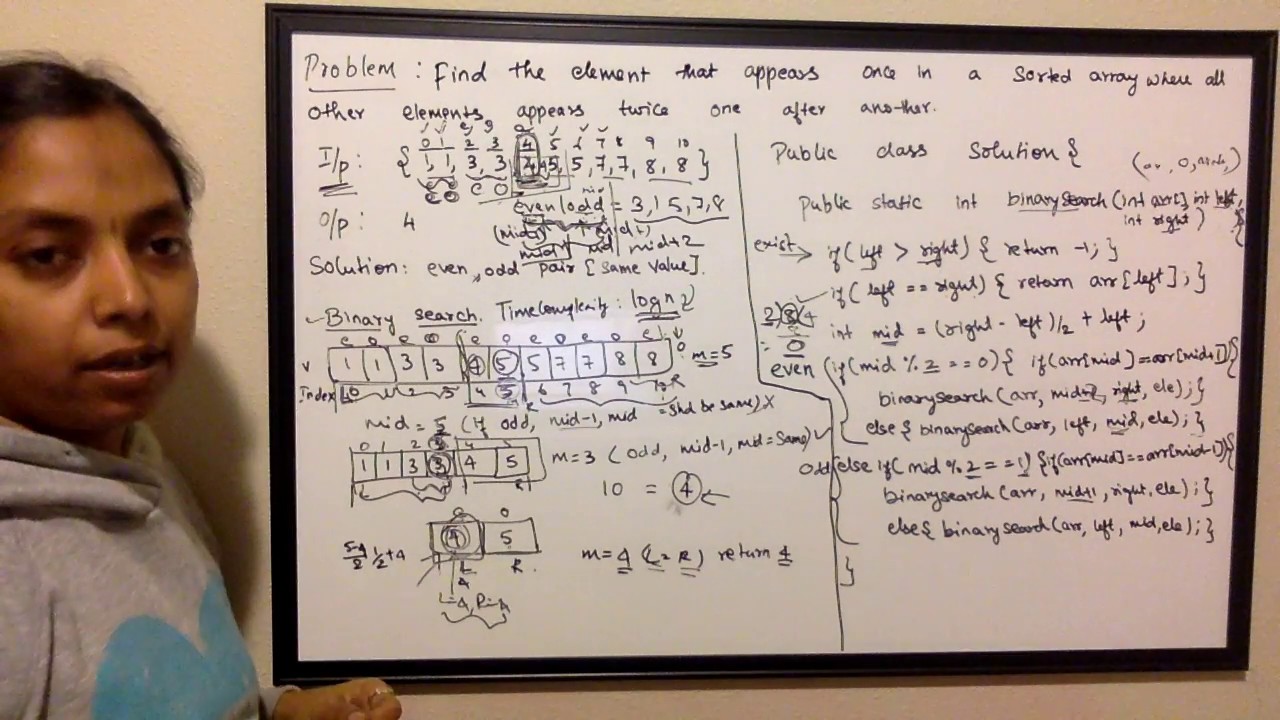 Problem : Find the element that appears once in a sorted array where all
other elements appears twice one after another.
0 1 2 3 4 5 6 7 8 9 10
I/p : { 1, 1, 3, 3, 4, 5, 5, 7, 7, 8, 8 }
even odd = 3, 1 5, 7, 8
O/p : 4
mid+2
Solution: even, odd pair [same value].
Binary search. Timecomplexity : log n
e o e o e o e o e o e
1 1 3 3 4 5 5 7 7 8 8 m=5
Index 0 1 2 3 4 5 6 7 8 9 10 R
mid = 5 (If odd, mid-1, mid = shd be same) X
0 1 2 3 4 5
1 1 3 3 4 5 m=3 (odd, mid-1, mid = same)
L R
10 = 4
e o
4 5 m=4 (L=R) return 4
L R.
4
L=4, R=4
Public class Solution {
Public static int binarySearch (int arr[], int left,
int right) {
exist if( left > right) { return -1; }
if( left == right) { return arr[left]; }
int mid = (right - left)/2 + left ;
= 0
even if(mid % 2 == 0) { if(arr[mid] == arr[mid+1]) {
binarysearch (arr, mid+2, right, ele); }
else { binarysearch (arr, left, mid, ele); }
odd else if( mid % 2 == 1) { if(arr[mid] == arr[mid-1]) {
binarysearch (arr, mid+1, right, ele); }
else { binarysearch (arr, left, mid, ele); }
}